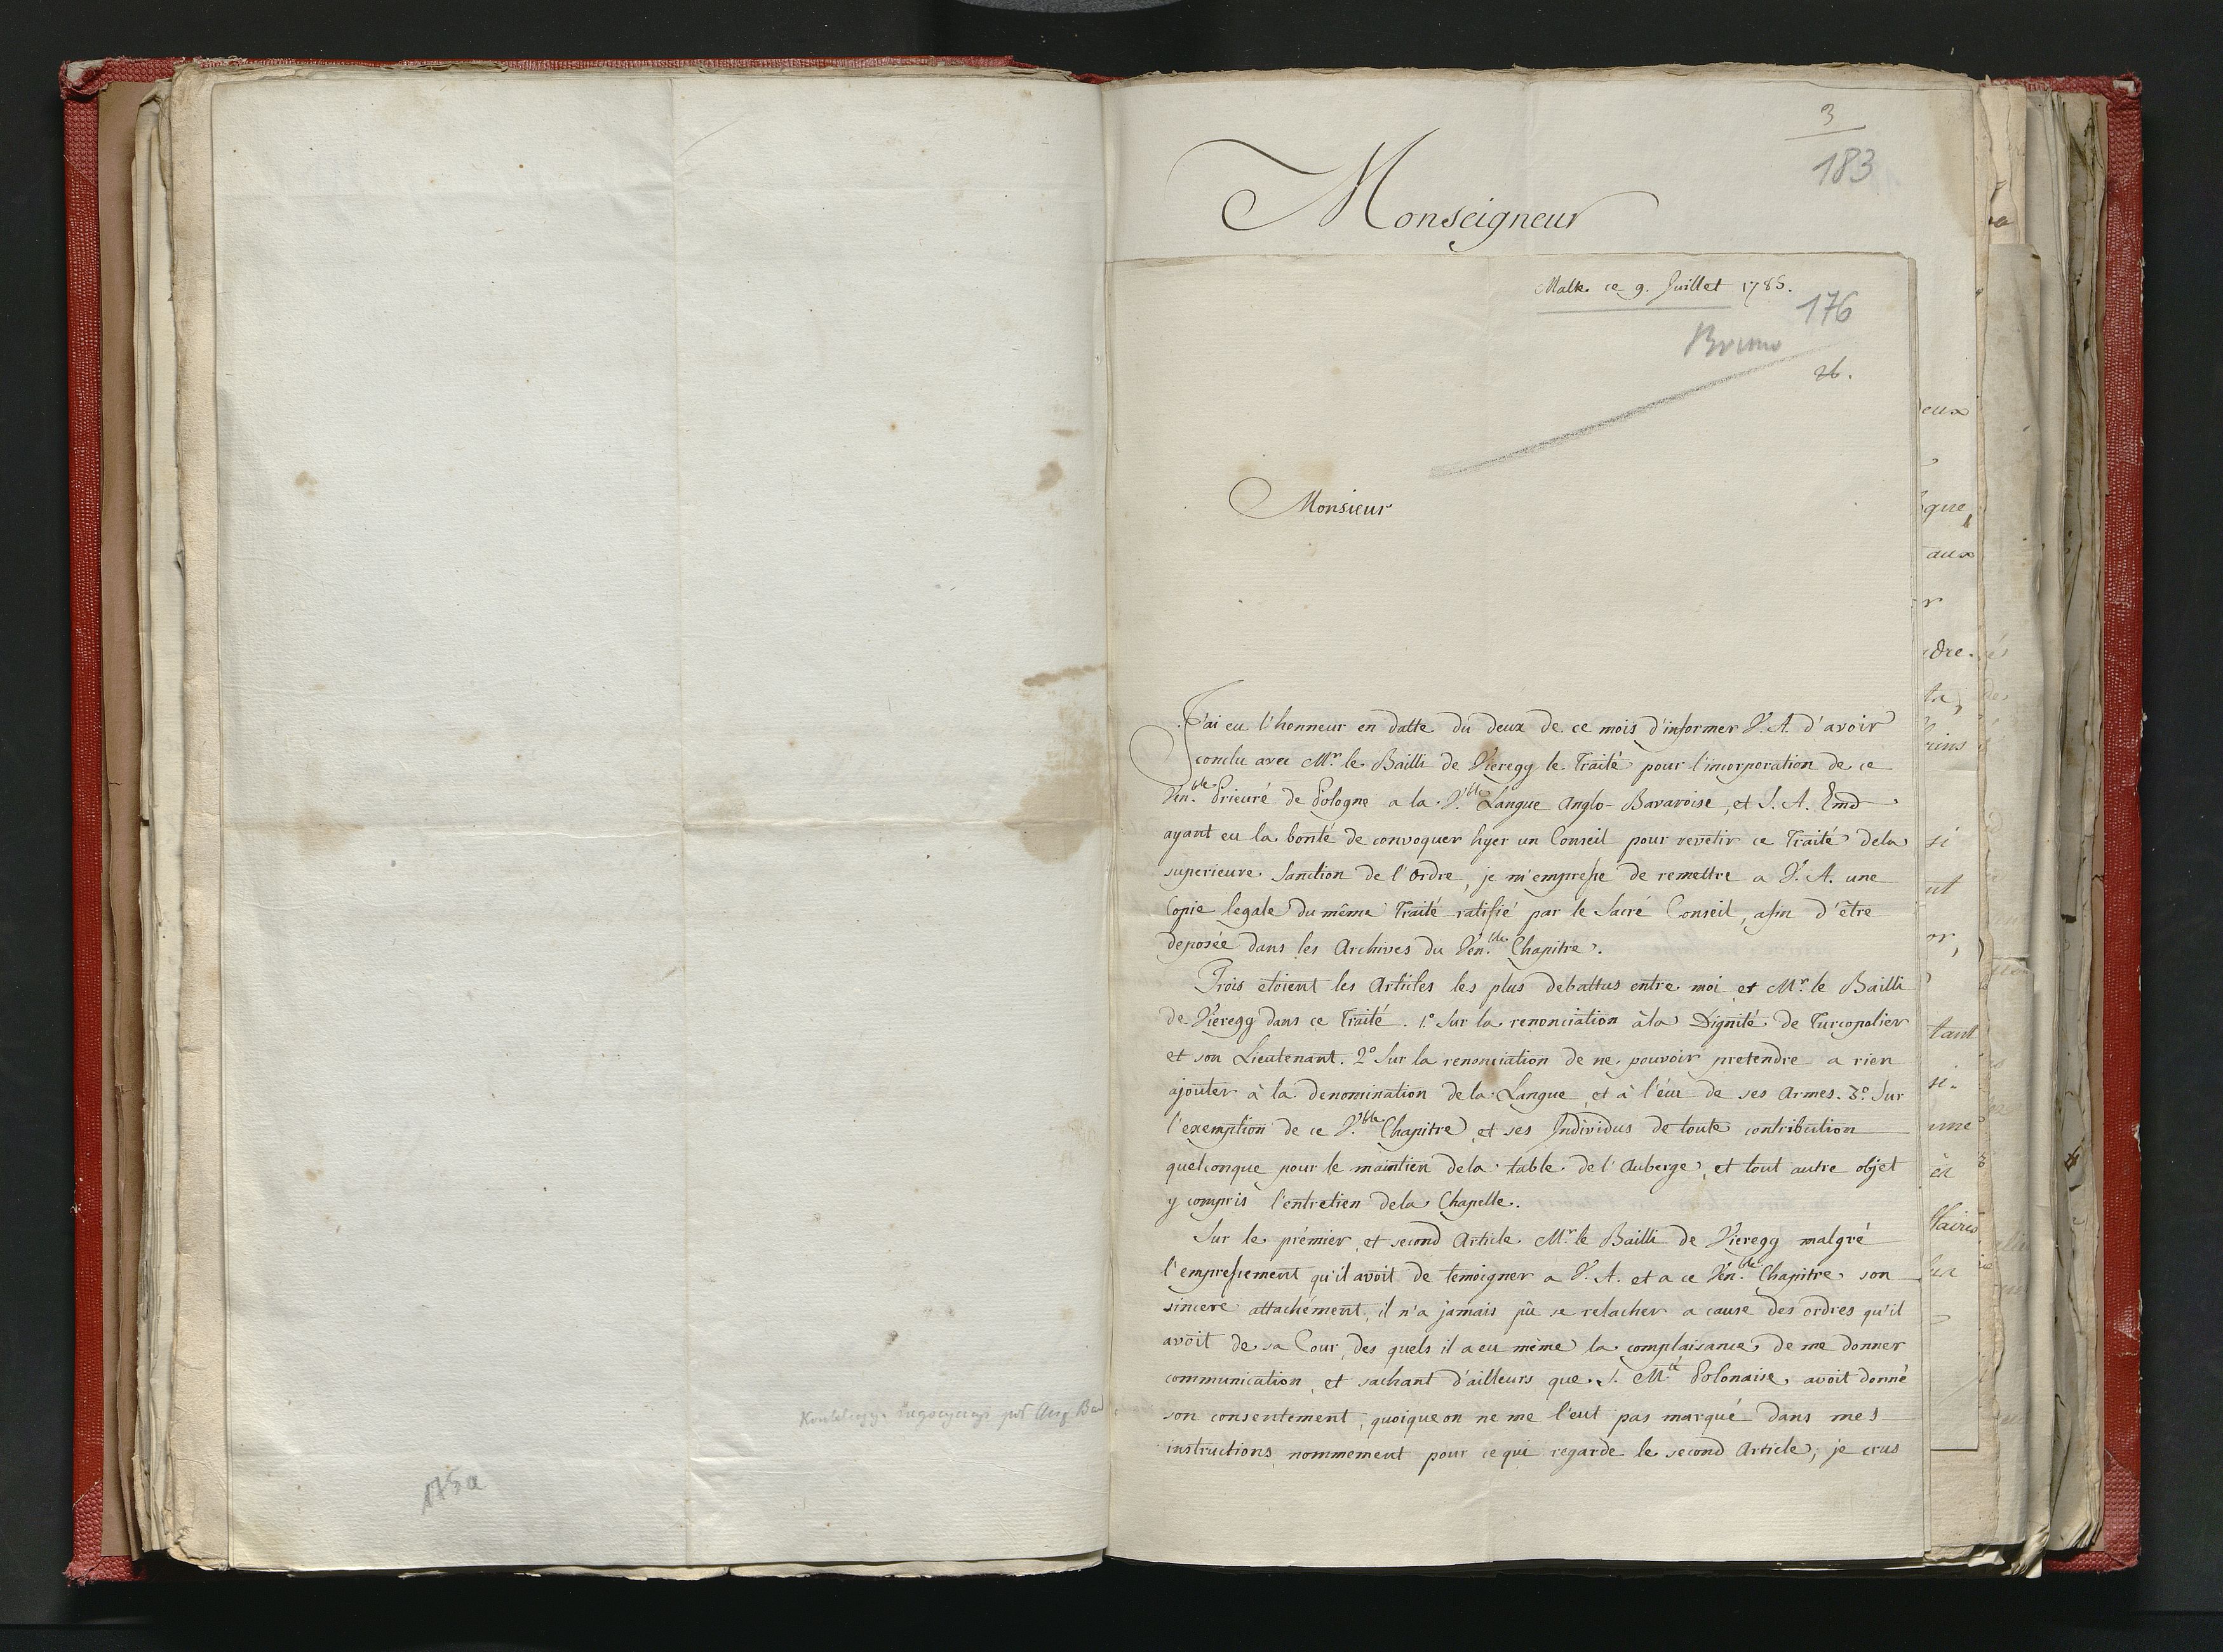 175a
3
183
Monseigneur
Malte ce 9. Juillet 1785.
176
Bruno
26.
Monsieur
J'ai eu l'honneur en datte du deux de ce mois d'informer V. A. d'avoir
conclu avec Mr. le Bailli de Vieregg le Traité pour l'incorporation de ce
Ven.ble Prieuré de Pologne a la V.ble Langue Anglo-Bavaroise, et S. A. Em
ayant eu la bonté de convoquer hyer un Conseil pour revetir ce Traité dela
superieure Sanction de l'Ordre, je m'empresse de remettre a V. A. une
Copie legale du même Traité ratifié par le Sacré Conseil, afin d'être
deposée dans les Archives du Ven.ble Chapitre.
Trois etoient les Articles les plus debattus entre moi et Mr. le Bailli
de Vieregg dans ce Traité. 1.º Sur la renonciation à la Dignité de Turcopolier
et son Lieutenant. 2º Sur la renonciation de ne pouvoir pretendre a rien
ajouter à la denomination dela Langue, et à l'écu de ses Armes. 3.º Sur
l'exemption de ce V.ble Chapitre, et ses Individus de toute contribution
quelconque pour le maintien dela table de l'Auberge, et tout autre objet
y compris l'entretien dela Chapelle.
Sur le prémier, et second Article Mr. le Bailli de Vieregg malgré
l'empressement qu'il avoit de temoigner a V. A. et a ce Ven.ble Chapitre son
sincere attachément, il n'a jamais pû se relacher a cause des ordres qu'il
avoit de sa Cour, des quels il a eu même la complaisance de me donner
communication, et sachant d'ailleurs que S. M.té Polonaise avoit donné
son consentement, quoique on ne me l'eut pas marqué dans mes
instructions, nommement pour ce qui regarde le second Article; je crus